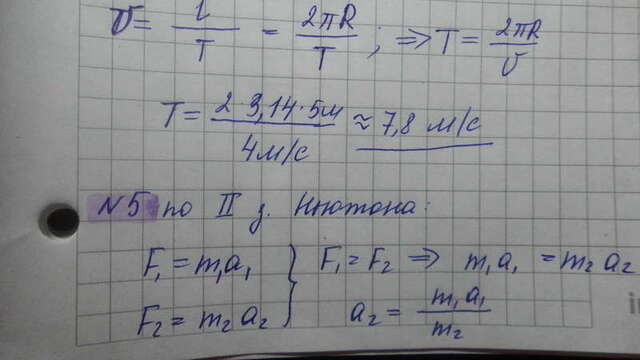 υ = l/T = 2πR/T ; ⇒ T = 2πR/υ
T = 2·3,14·5м / 4м/с ≈ 7,8 м/с
N5 по II з. Ньютона:
F₁ = m₁a₁ } F₁ = F₂ ⇒ m₁a₁ = m₂a₂
F₂ = m₂a₂ a₂ = m₁a₁/m₂